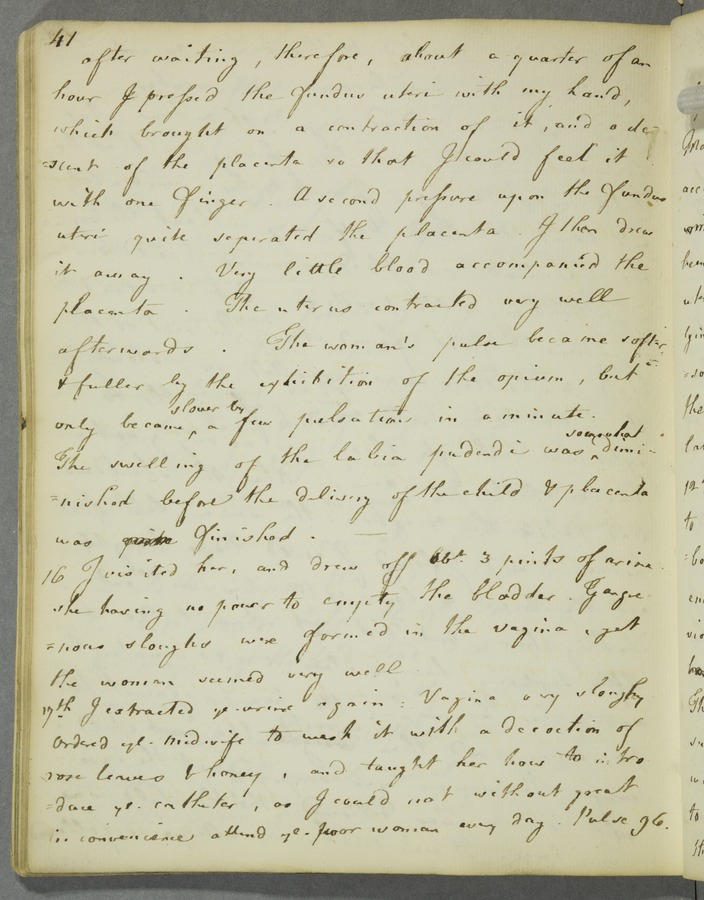 41
after waiting, therefore, about a quarter of an
hour I pressed the fundus uteri with my hand,
which brought on a contraction of it, and a de-
=scent of the placenta so that I could feel it
with one finger. A second pressure upon the fundus
uteri quite seperated the placenta. I then drew
it away. Very little blood accompanied the
placenta. The uterus contracted very well
afterwards. The woman's pulse became softer
& fuller by the exhibition of the opium, but
only became slower by a few pulsations in a minute.
The swelling of the labia pudendi was somewhat dimi-
=nished before the delivery of the child & placenta
was finished.
16 I visited her, and drew off abt. 3 pints of urine
she having no power to empty the bladder. Gangre-
=nous sloughs were formed in the vagina, yet
the woman seemed very well.
17th I extracted ye. urine again: Vagina very sloughy
Ordered ye. midwife to wash it with a decoction of
rose leaves & honey, and taught her how to intro
=duce ye. catheter, as I could not without great
inconvenience attend ye. poor woman every day. Pulse 96.